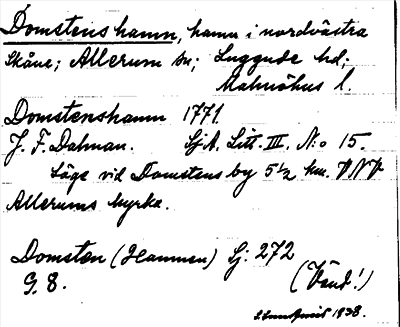 Domstens hamn, hamn i nordvästra
Skåne; Allerum sn; Luggude hd;
Malmöhus l.
Domstenshamn 1771.
J. F. Dalman. Sj A. Litt. III. N:o 15.
Läge vid Domstens by 5 1/2 km. VNV
Allerums kyrka.
Domsten (Hamnen) Sj: 272
G. 8. (Vänd!)
1938.